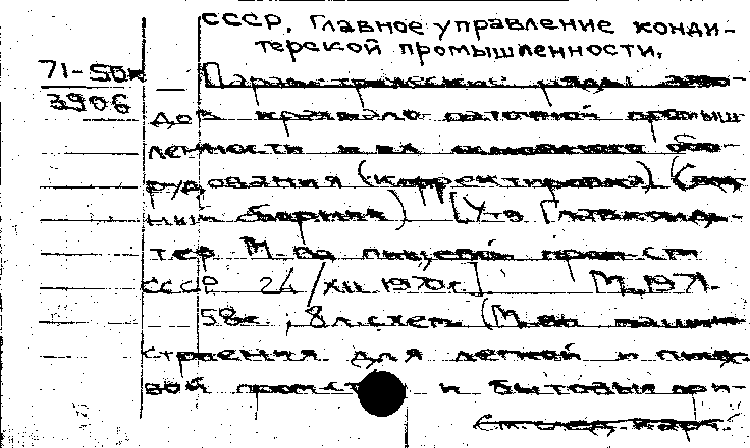 СССР. Главное управление конди-
терской промышленности.
71-50к Параметрические ряды заво-
3906
дов крахмало паточной промыш
ленности и их основного обо-
рудования (корректировка). (Свод
ный сборник) [Утв Главконди-
тер М-ва пищевой пром-сти
СССР 24/XII 1970г.]. М., 1971.
58с., 8 л. схем (М-во машино
строения для легкой и пище
вой пром-сти и бытовых при-
См. след. карт.